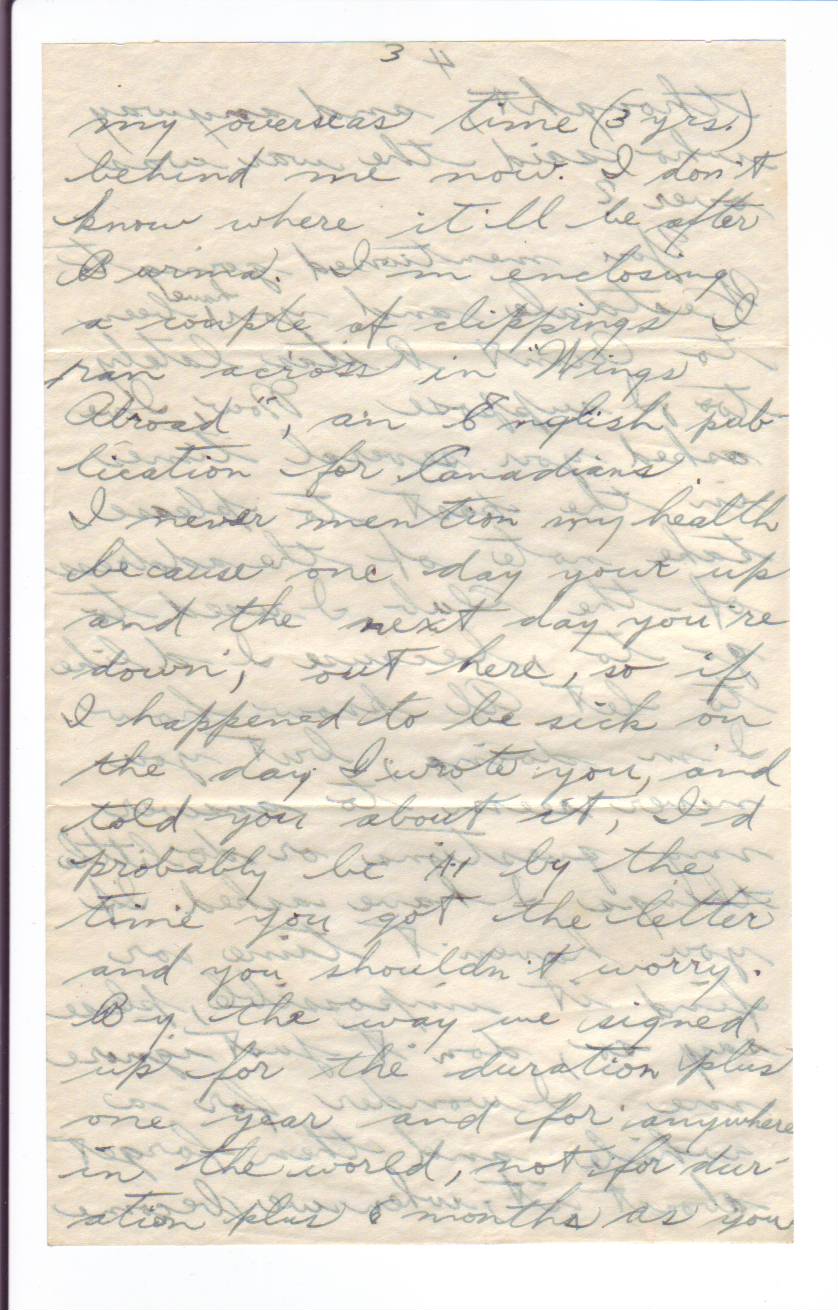 3
my overseas time (3 yrs.)
behind me now. I don't
know where it'll be after
Burma. I'm enclosing
a couple of clippings I
ran across in "Wings
Abroad", an English pub-
lication for Canadians.
I never mention my health
because one day your up
and the next day you're
'down', out here, so if
I happened to be sick on
the day I wrote you, and
told you about it, I'd
probably be A-1 by the
time you got the letter
and you shouldn't worry.
By the way we signed
up for the duration plus
one year and for anywhere
in the world, not for dur-
ation plus 6 months as you